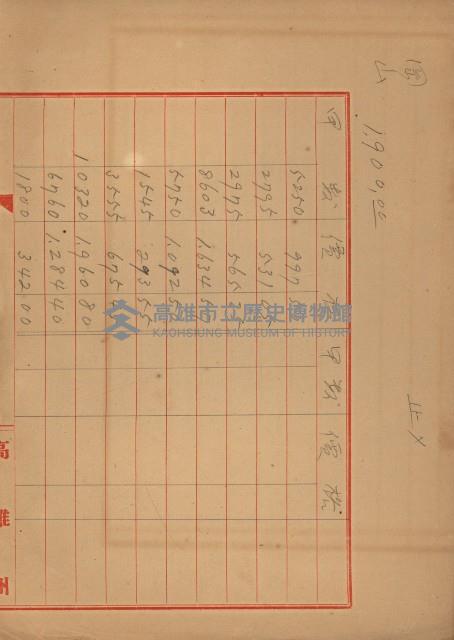 岡山
1.900.00
甲數 價格 甲數 價格
5250 997.50
2795 531.05
2975 565.25
8603
5750 1.092.50
1545 293.55
3555
10320 1.960.80
6760 1.284.40
1800 342.00
高雄州
高雄市立歷史博物館
KAOHSIUNG MUSEUM OF HISTORY